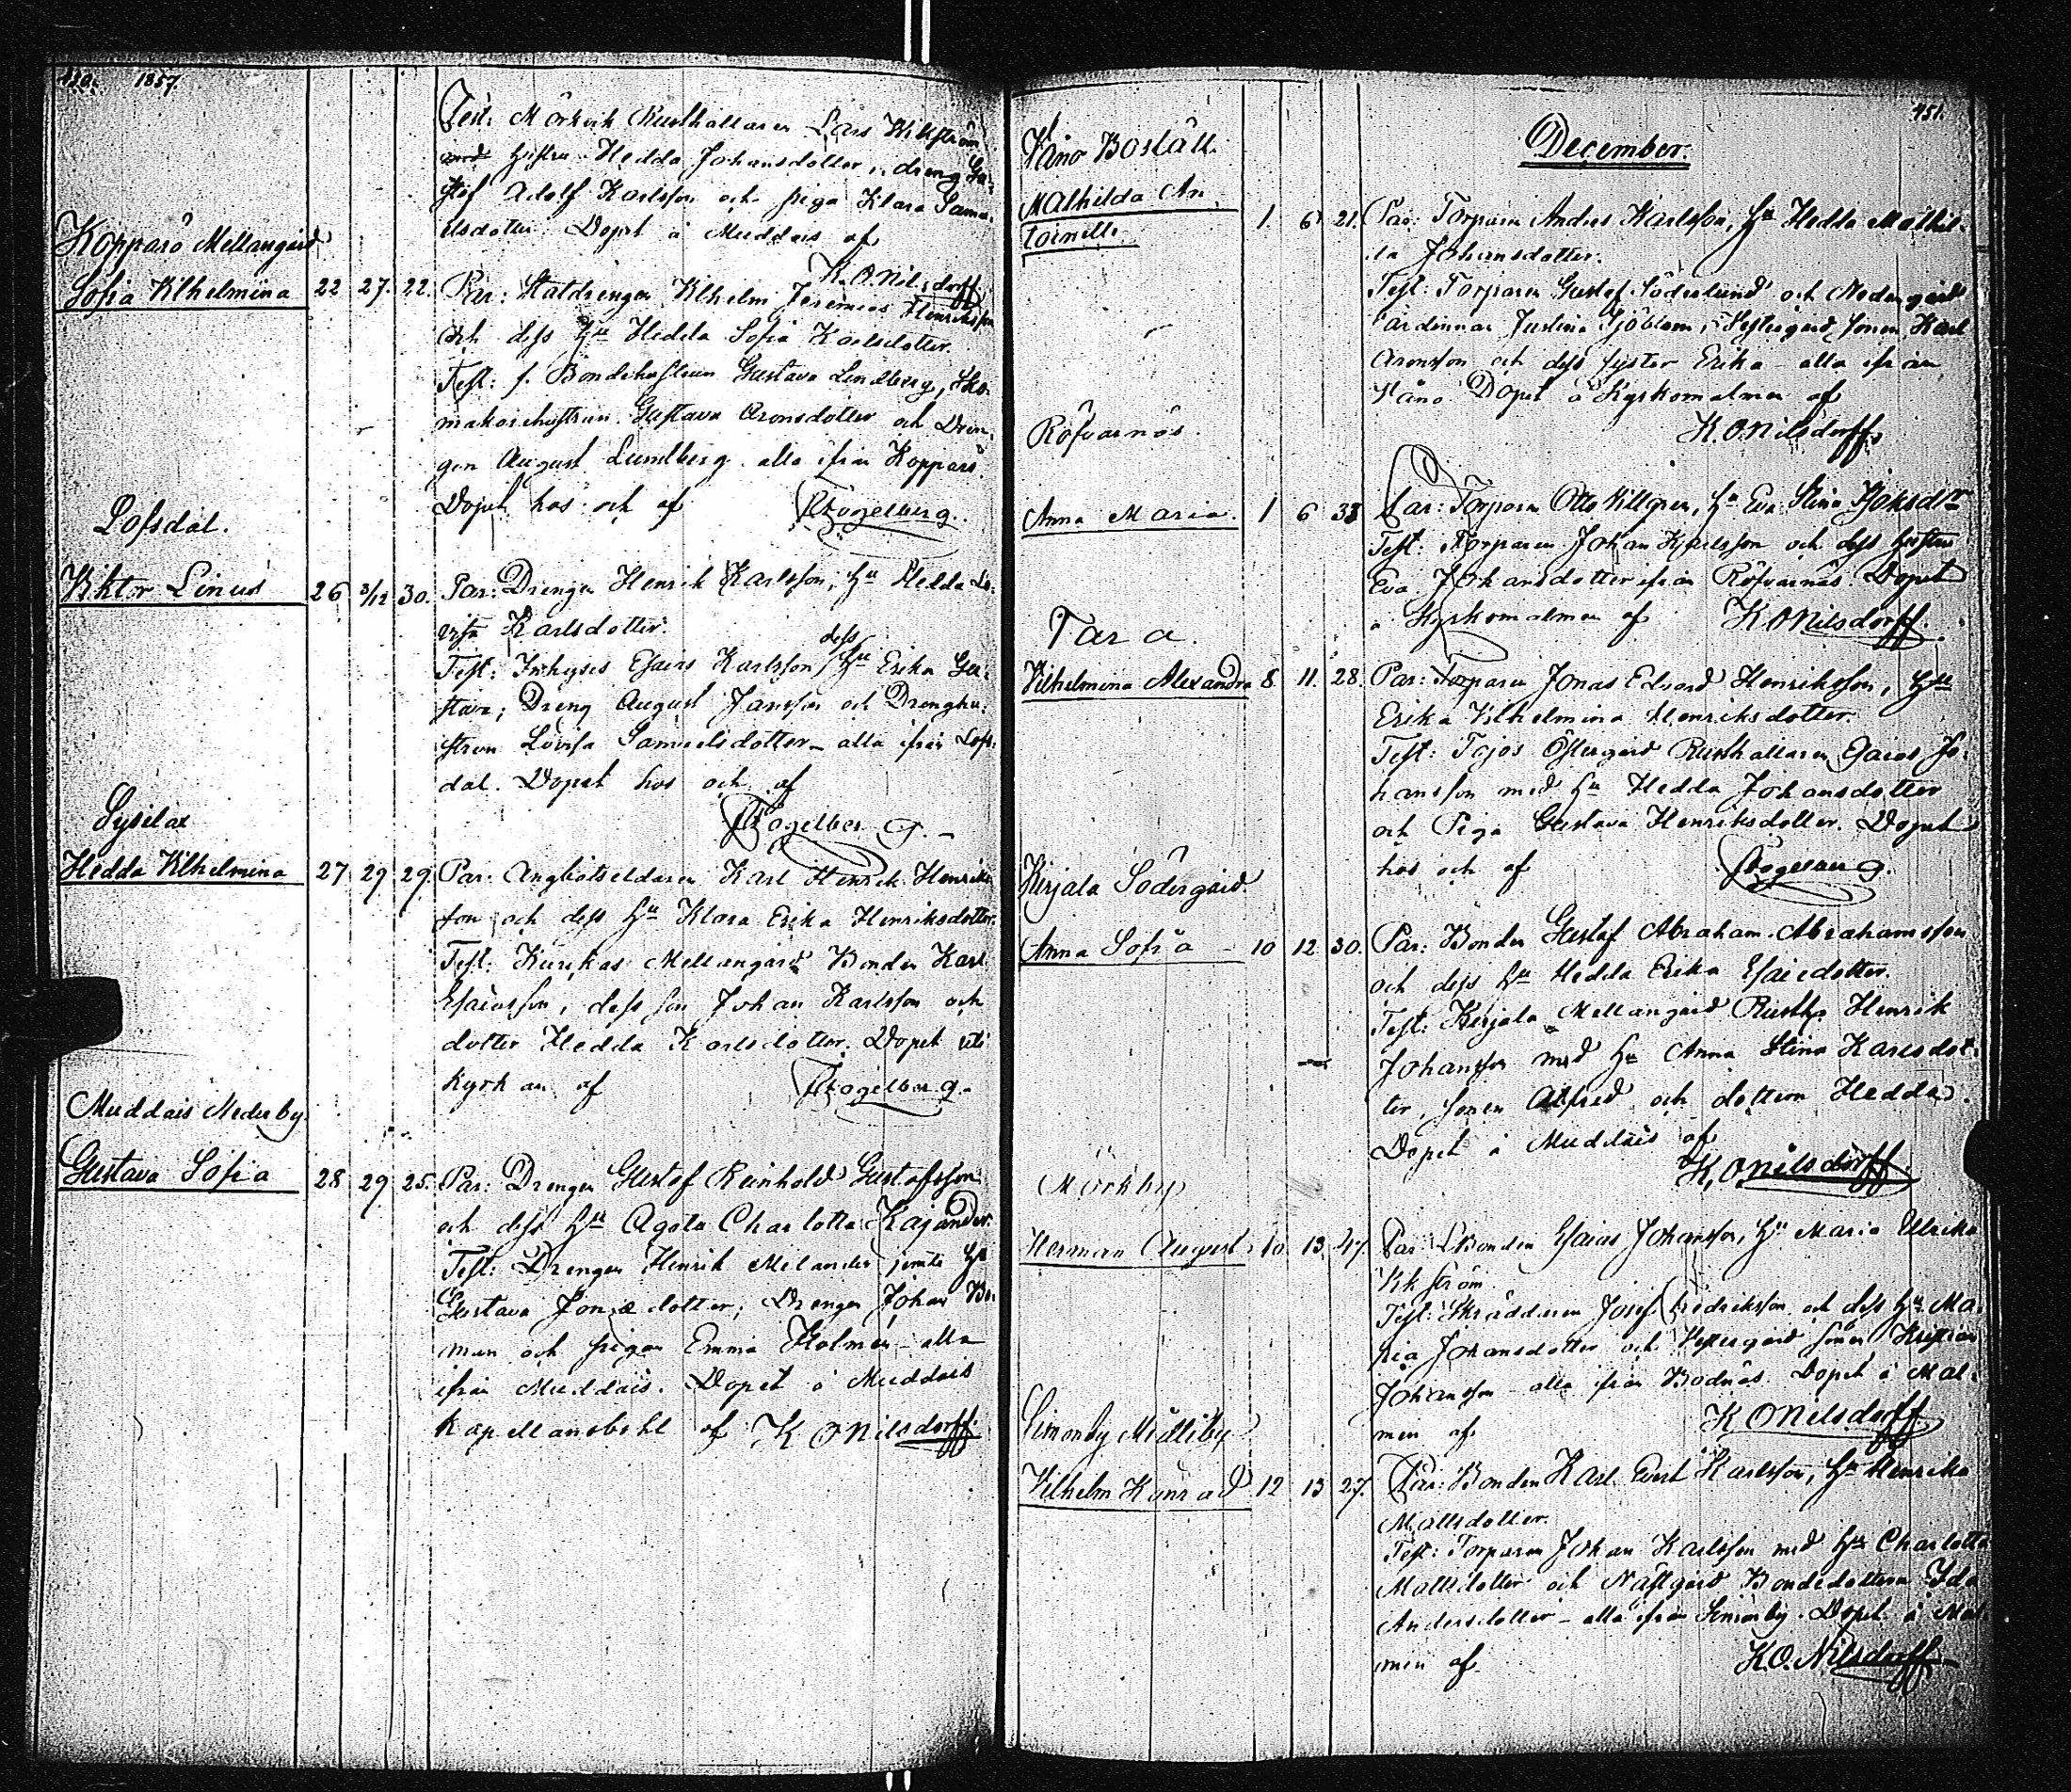 1857.
Test: Mörkvik Rusthållaren Lars Wikström
med hustru Hedda Johansdotter, dreng Gu-
stof Adolf Karlsson och pigo Klara Samu-
elsdotter. Döpet å Muddais af
K. O. Nilsdorff.
Kopparö Mellangård
Sofia Vilhelmina 22 27. 22. Par: Statdrengen Vilhelm Jeremias Henriksson
och dess Hu Hedda Sofia Karlsdotter.
Test: f. Bondehustrun Gustava Lindberg, Sko-
makarehustrun Gustava Aronsdotter och Dren-
gen August Lundberg alla ifrån Kopparö.
Döpet hos och af Fogelberg.
Lofsdal.
Viktor Linus 26 3/12 30. Par: Drengen Henrik Karlsson, Hu Hedda Lo-
visa Karlsdotter.
Test: Inhyses Esaias Karlsson dess Hu Erika Gu-
stava; Dreng August Jansson och Drenghu-
strun Lovisa Samuelsdotter – alla ifrån Lofs-
dal. Döpet hos och af
Fogelberg.
Sysilax
Hedda Vilhelmina 27 29 29. Par: Ångbåtseldaren Karl Henrik Henriks-
son och dess Hu Klara Erika Henriksdotter.
Test: Kurikas Mellangård Bonden Karl
Esaiasson, dess son Johan Karlsson och
dotter Hedda Karlsdotter. Döpet uti
Kyrkan af Fogelberg.
Muddais Nederby.
Gustava Sofia 28 29 25. Par: Drengen Gustof Reinhold Gustafsson
och dess Hu Agata Charlotta Kajander.
Test: Drengen Henrik Melander jemte Hu
Gustava Jonædotter; Drengen Johan Bo-
man och pigan Emma Holmen – alla
ifrån Muddais. Döpet å Muddais
Kapellansbohl af K O Nilsdorff.
451.
December.
Våno Boställ.
Mathilda An-
toinette. 1. 6 21. Par: Torparen Andres Karlsson, Hu Hedda Mathil-
da Johansdotter.
Test: Torparen Gustof Söderlund och Nedergård
värdinnan Justina Sjöblom; Westergård sonen Karl
Aronsson och dess syster Erika – alla ifrån
Våno. Döpet å Kyrkomalmen af
K. O Nilsdorff.
Röfvarnäs.
Anna Maria. 1 6 33 Par: Torparen Otto Villgren, Hu Eva Stina
Test: Torparen Johan Karlsson och dess hustru
Eva Johansdotter ifrån Röfvarnäs. Döpet
å Kyrkomalmen af K O Nilsdorff.
Tara.
Vilhelmina Alexandra 8. 11. 28. Par: Torparen Jonas Edvard Henriksson, Hu
Erika Vilhelmina Henriksdotter.
Test: Tojos Östergård Rusthållaren Esaias Jo-
hansson med Hu Hedda Johansdotter
och Piga Gustava Henriksdotter. Döpet
hos och af Fogelberg.
Kirjala Södergård
Anna Sofia – 10 12 30. Par: Bonden Gustaf Abraham Abrahamsson
och dess Hu Hedda Erika Esaiedotter.
Test: Kirjala Mellangård Rusth. Henrik
Johansson med Hu Anna Stina Karlsdot-
ter, sonen Alfred och dottern Hedda.
Döpet å Muddais af
K. O Nilsdorff.
Mörkby
Herman August. 10. 13. 47. Par: Bonden Esaias Johansson, Hu Maria Ulrika
Vikström
Test: Skräddaren Josef Fredriksson och dess Hu Ma-
ria Johansdotter och Westergård sonen Kristian
Johansson – alla från Bodnäs. Döpet å Mal-
men af K O Nilsdorff
Simonby Mellby
Vilhelm Konrad. 12 13 27. Par: Bonden Karl Karlsson, Hu Henrika
Mattsdotter.
Test: Torparen Johan Karlsson med Hu Charlotta
Mattsdotter och Näsgård Bondedottern Ida
Andersdotter – alla ifrån Simonby. Döpet å Mal-
men af K. O. Nilsdorff